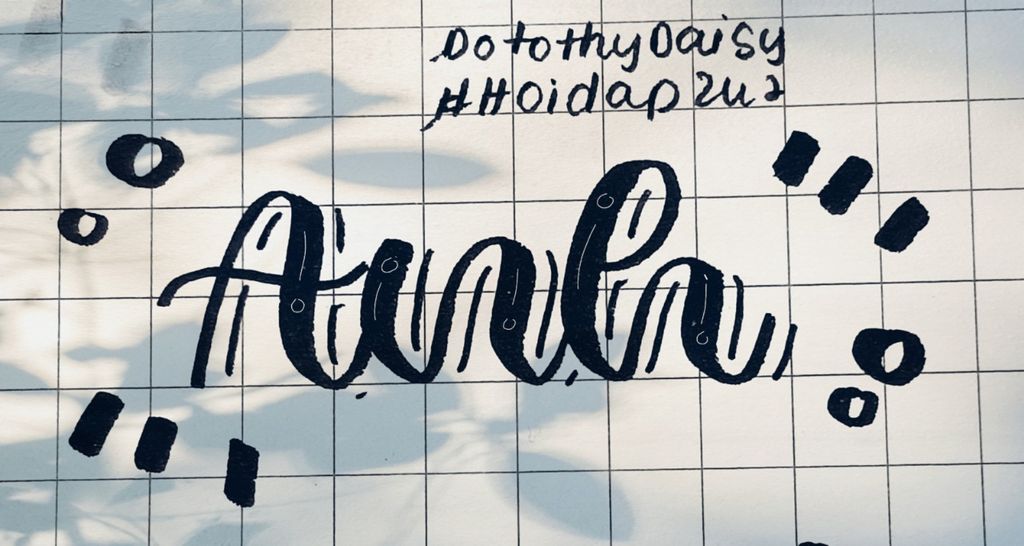 DotothyDaisy
#Hoidap2u2
Anh